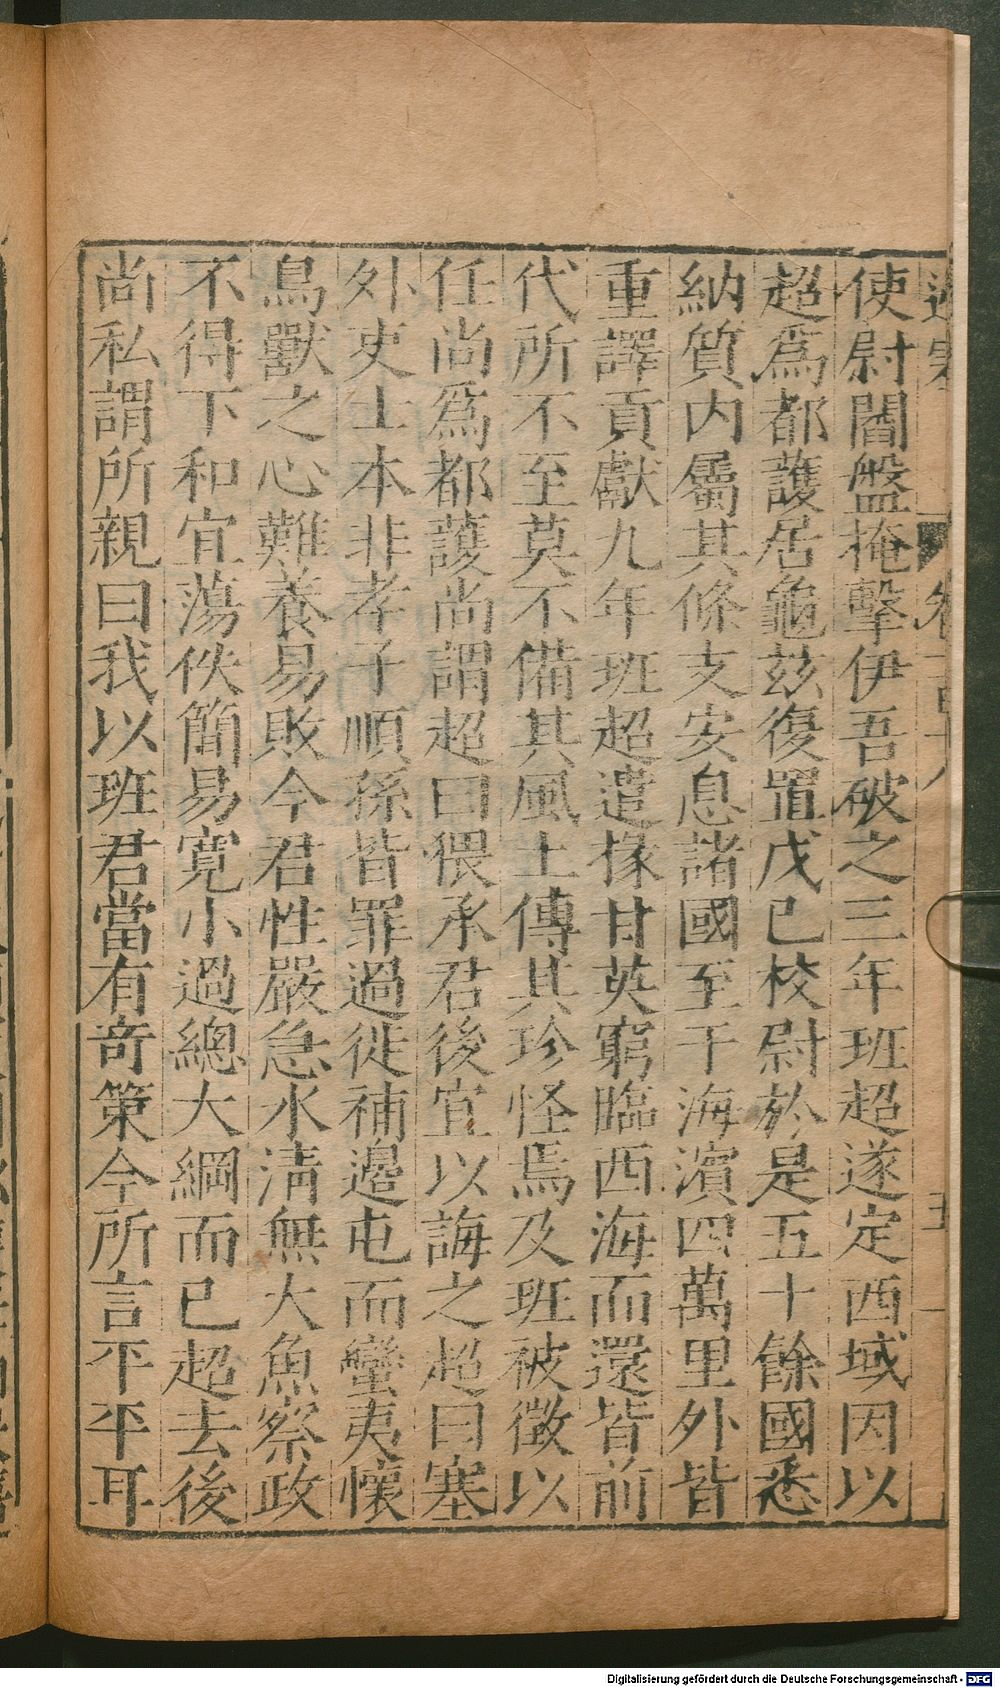 使尉閻盤掩擊伊吾破之三年班超遂定西域因以
超爲都護居龜茲復置戊已校尉於是五十餘國悉
納質内屬其條支安息諸國至于海濱四萬里外皆
重譯貢獻九年班超遣掾甘英窮臨西海而還皆前
代所不至莫不備其風土傳其珍怪焉及班被徵以
任尚爲都護尚謂超曰猥承君後宜以誨之超曰塞
外吏士本非孝子順孫皆罪過徙補邊屯而蠻夷懷
鳥獸之心難養易敗今君性嚴急水淸無大魚察政
不得下和宜蕩佚簡易寬小過總大綱而已超去後
尚私謂所親曰我以班君當有奇策今所言平平耳
Digitalisierung gefördert durch die Deutsche Forschungsgemeinschaft - DFG